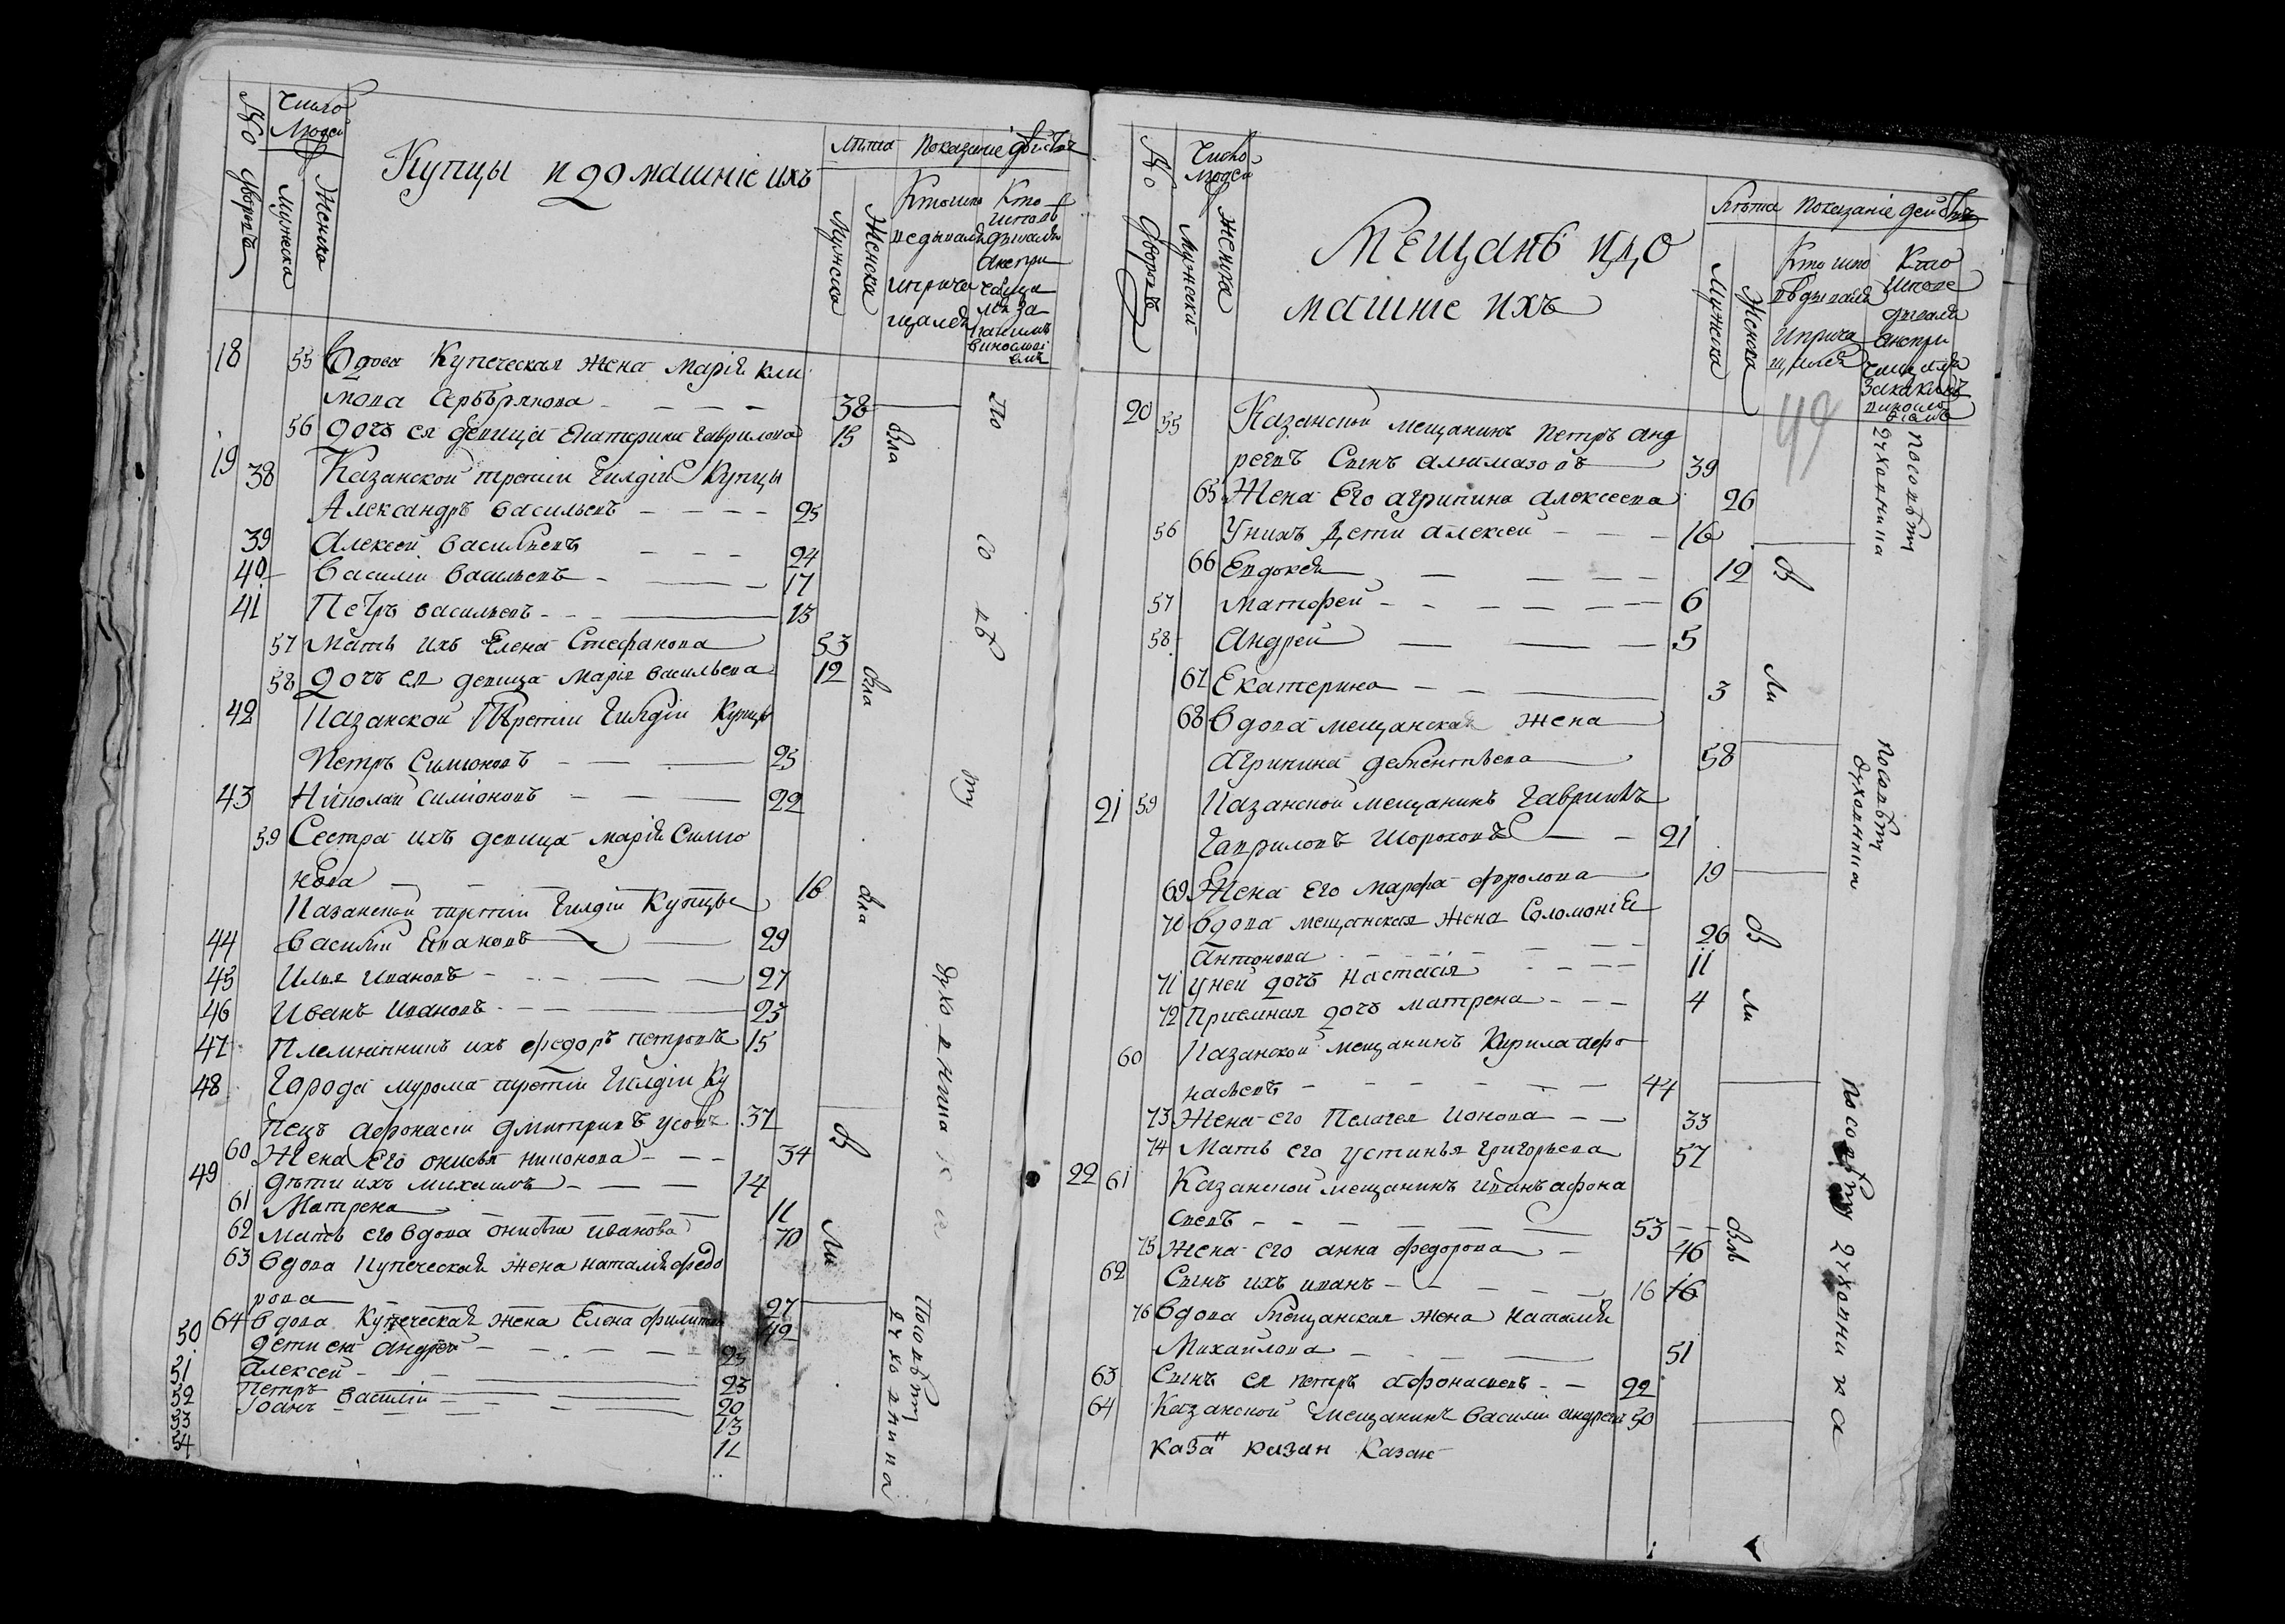 Число
Людей
No дворовъ
Мужеска
Женска
Купцы и домашніе ихъ
Лѣта
Показаніе действа
Мужеска
Женска
Кто
Кто
18 55 Вдова Купеческая жена Марія Кли
мова Серѣбрякова 38
56 дочь ея девица Екатерина Гаврилова 15
19 38 Казанской третіи Гилдіи Купцы
Александръ Васильевъ 25
39 Алексей Васильевъ 24
40 Василіи Васильевъ 17
41 Петръ Васильевъ 15
57 Мать ихъ Елена Стефанова 53
58 дочь ея девица Марія Васильева 12
42 Казанской третіи Гилдіи Купцы
Петръ Симіоновъ 25
43 Николаи Симіоновъ 22
59 Сестра ихъ девица Марія Симіо
нова 16
Казанской третіи Гилдіи Купцы
44 Василіи Ивановъ 29
45 Илья Ивановъ 27
46 Иванъ Ивановъ 23
47 Племянникъ ихъ Федоръ Петровъ 15
48 Города Мурома третіи Гилдіи Ку
пецъ Афонасіи Дмитриевъ Усовъ 37
60 Жена Его Онисья Никонова 34
49 Дѣти ихъ Михаилъ 14
61 Матрена 11
62 Мать его вдова Онисья Иванова 70
63 Вдова Купеческая жена Наталія Федо
рова 27
64 Вдова Купеческая жена Елена 42
50 Дети ея Андрей 25
51 Алексей 23
52 Петръ 20
53 Василіи 13
54 Іоанъ 11
вла
вла
вла
В
Ли
По со вѣ ту духовника
По совѣту
духовника
No дворовъ
Число
Людей
Мужеска
Женска
Мещанѣ и до
машніе ихъ
Лѣта
Показаніе действа
Мужеска
Женска
Кто
Кто
49
20 55 Казанской мещанинъ Петръ Анд
реевъ Сынъ Алямазовъ 39
65 Жена Его Агрипина Алексеева 26
56 У нихъ Дети Алексеи 16
66 Евдокея 12
57 Матфей 6
58 Андреи 5
67 Екатерина 3
68 Вдова мещанская жена
Агрипина Дементьева 58
21 59 Казанской мещанинъ Гаврила
Гавриловъ Шороховъ 21
69 Жена Его Марфа Фролова 19
70 Вдова мещанская жена Соломонія
Антонова 26
71 У ней дочь Настасія 11
72 Приемная дочь Матрена 4
60 Казанской мещанинъ Кирила Афо
насьевъ 44
73 Жена его Пелагея Іонова 33
74 Мать его Устинья Григорьева 57
22 61 Казанской мещанинъ Иванъ Афона
сьевъ 53
75 Жена его Анна Федорова 46
62 Сынъ ихъ Иванъ 16 16
76 Вдова мещанская жена Наталія
Михаилова 51
63 Сынъ ея Петръ Афонасьевъ 22
64 Казанской мещанинъ Василіи Андреевъ 50
каза казан Казан
В
Ли
В
Ли
По совѣту
духовника
По совѣту
духовника
По совѣту духовника